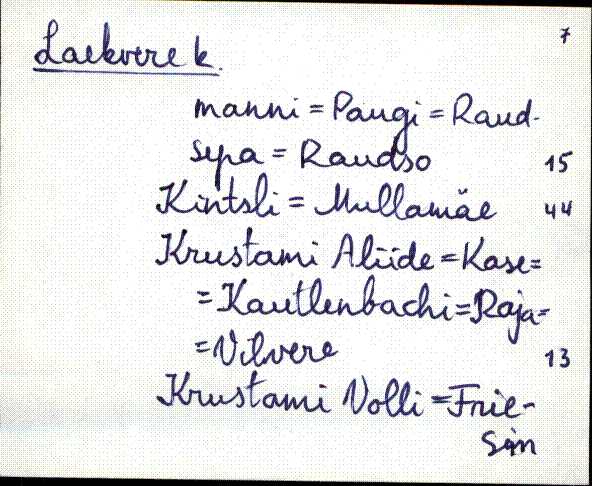 7
Laekvere k.
manni = Paugi = Raud-
sepa = Raudso 15
Kintsli = Mullamäe 44
Krustami Aliide = Kase =
= Kautlenbachi = Raja =
= Vilvere 13
Krustami Volli = Frie-
sin